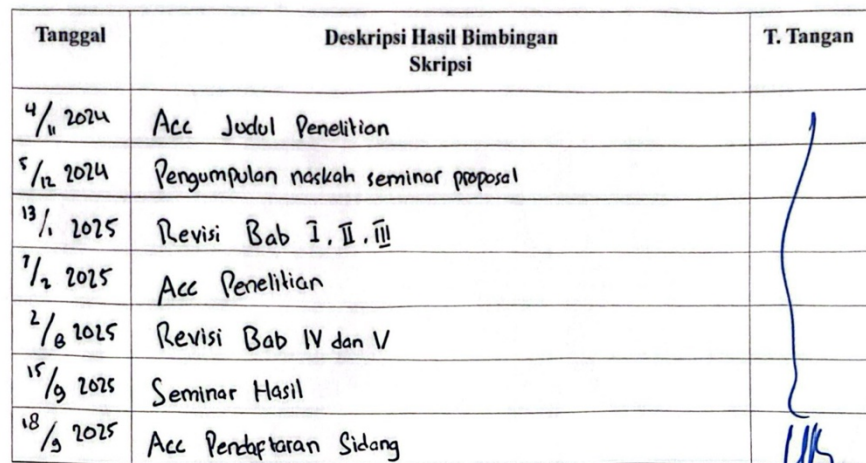 Tanggal Deskripsi Hasil Bimbingan Skripsi T. Tangan
4/11 2024 Acc Judul Penelitian
5/12 2024 Pengumpulan naskah seminar proposal
13/1 2025 Revisi Bab I, II, III
7/2 2025 Acc Penelitian
2/8 2025 Revisi Bab IV dan V
15/9 2025 Seminar Hasil
18/9 2025 Acc Pendaftaran Sidang